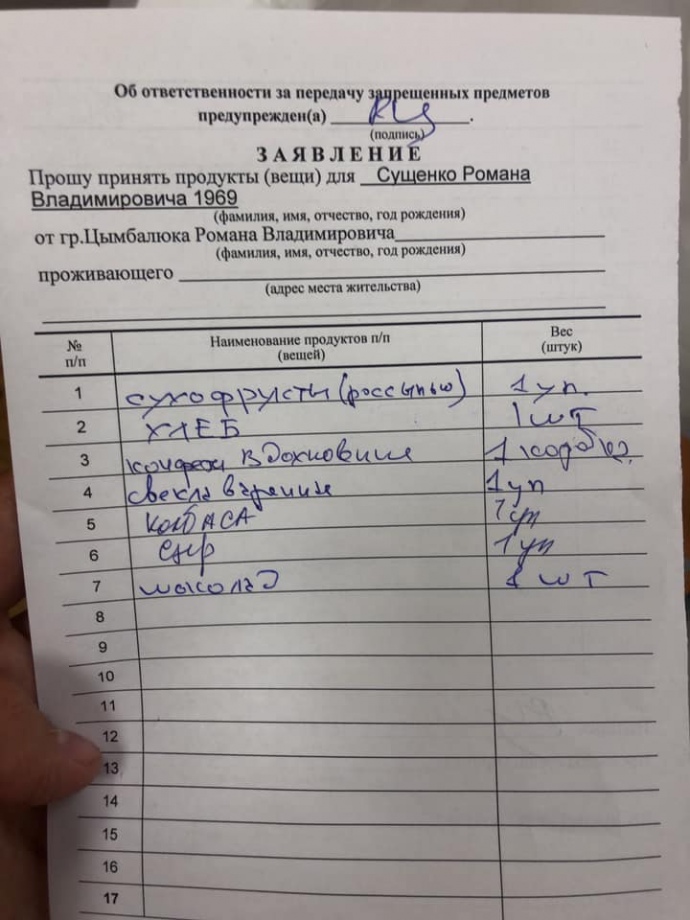 Об ответственности за передачу запрещенных предметов
предупрежден(а) ______________.
(подпись)
ЗАЯВЛЕНИЕ
Прошу принять продукты (вещи) для Сущенко Романа
Владимировича 1969
(фамилия, имя, отчество, год рождения)
от гр.Цымбалюка Романа Владимировича
(фамилия, имя, отчество, год рождения)
проживающего
(адрес места жительства)
№ п/п Наименование продуктов п/п (вещей) Вес (штук)
1 сухофрукты (россыпью) 1 уп.
2 ХЛЕБ 1 шт
3 конфеты Вдохновение 1 короб
4 свекла вареная 1 уп
5 колбаса уп
6 сыр 1 уп
7 шоколад 1 шт
8
9
10
11
12
13
14
15
16
17